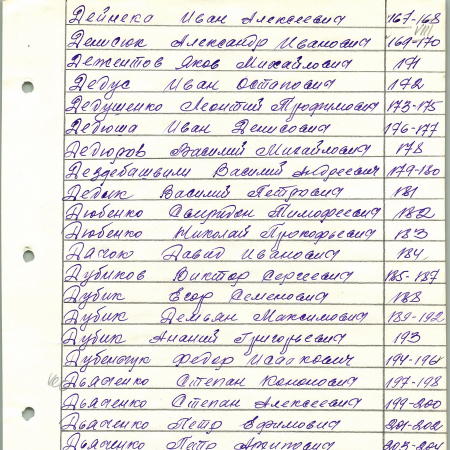 Дейнека Иван Алексеевич 167-168
Денисюк Александр Иванович 169-170
Дежентов Яков Михайлович 171
Дедус Иван Остапович 172
Дедушенко Леонтий Трофимович 173-175
Дедюша Иван Денисович 176-177
Дедюров Василий Михайлович 178
Дездебашвили Василий Андреевич 179-180
Дедык Василий Петрович 181
Дюбенко Свиридон Тимофеевич 182
Дюбенко Николай Прокофьевич 183
Дачок Давид Иванович 184
Дубиков Виктор Сергеевич 185-187
Дубик Егор Семенович 188
Дубик Демьян Максимович 189-192
Дубик Ананий Григорьевич 193
Дубенчук Федор Исаакович 194-196
Дьяченко Степан Кононович 197-198
Дьяченко Степан Алексеевич 199-200
Дьяченко Петр Ефимович 201-202
Дьяченко Петр Архипович 203-204